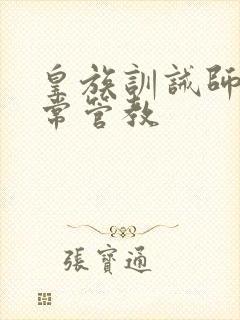 皇族訓誡師
常管教
張寶通